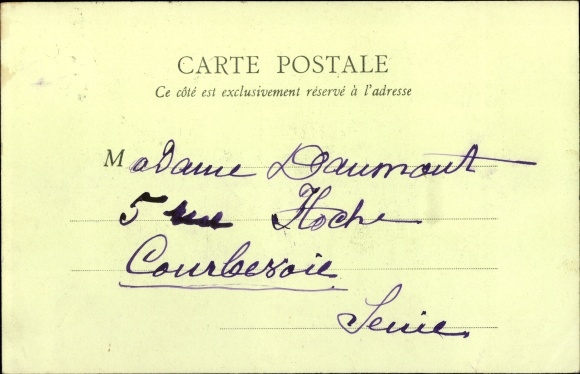 CARTE POSTALE
Ce côté est exclusivement réservé à l'adresse
Madame Daumont
5 rue Hoche
Courbevoie
Seine